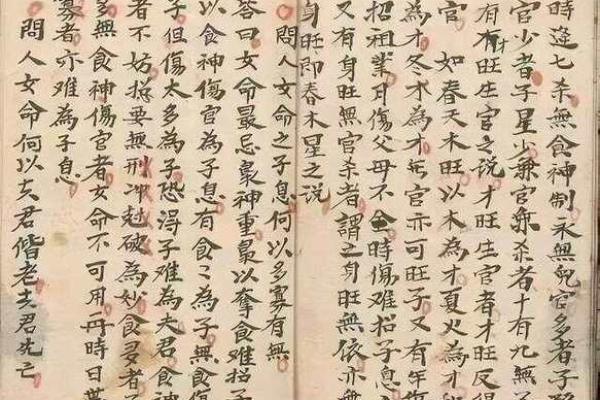 時逢七杀無食神制永無兒官多者子
官少者子星少兼官無杀者十有九無子
有旺生官之說才旺生官者才旺反得
官 如春天木旺以木為才夏火為才
為才冬水為才無官亦可旺子又有年傷
招祖業月傷父母不全時傷难招子息
又有身旺無官杀者謂之身旺無依亦無
身旺即春木星之說
問人女命之子息何以多寡有無
答曰女命最忌梟神重梟以奪食难招子
以食神傷官為子息有食〻為子無食傷
子但傷太多為子恐淂子难為夫君食神
者不妨揔要無刑冲尅破為妙食多者子
多無食神傷官者女命不可用再時日
寡者亦难為子息
問人女命何以夫君偕老夫君先亡